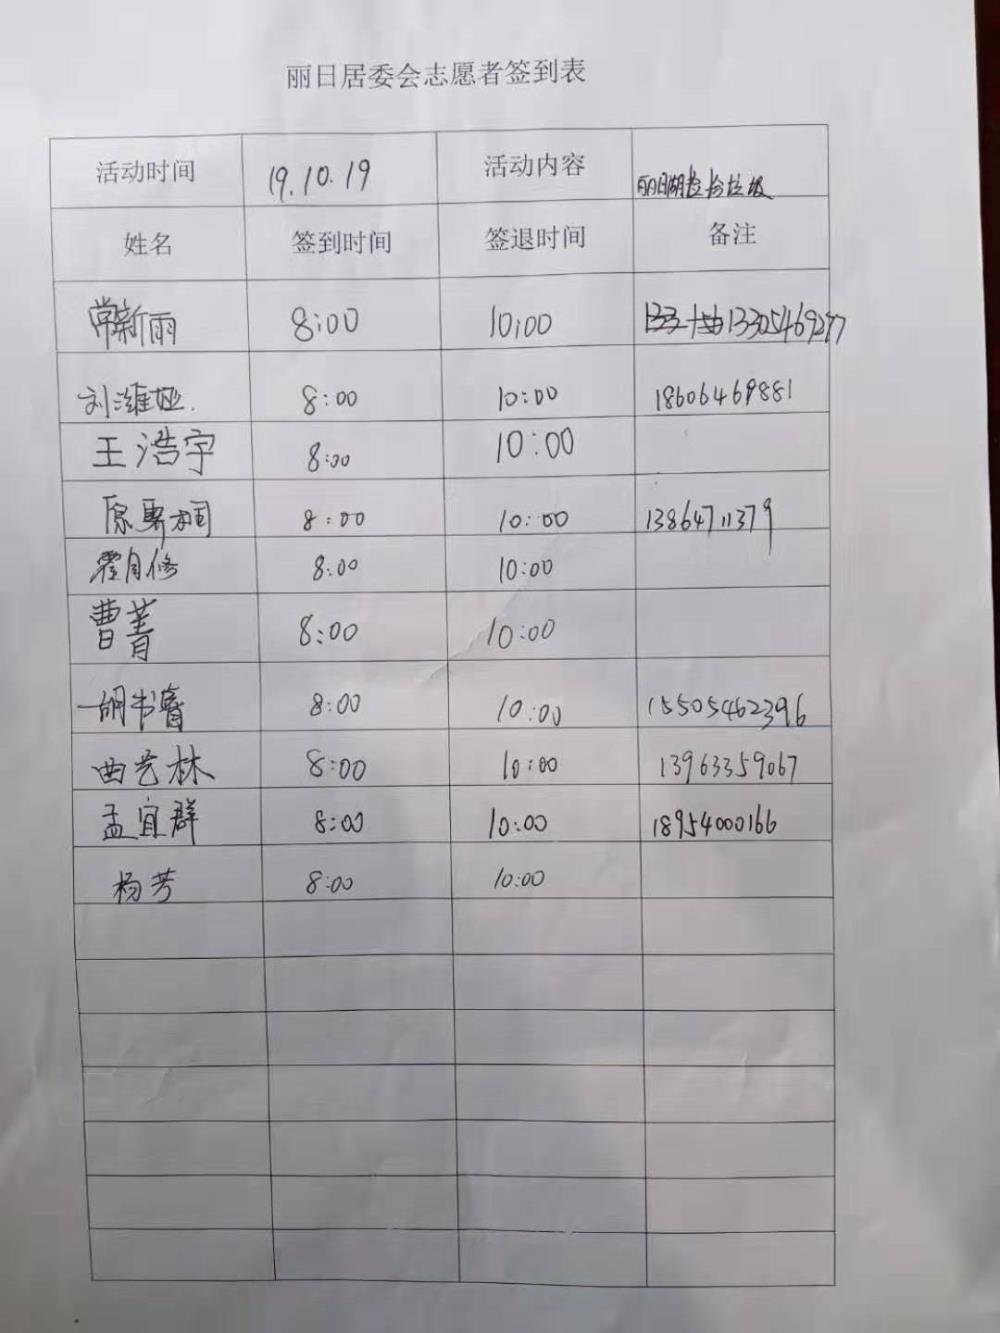 丽日居委会志愿者签到表
活动时间 19.10.19 活动内容 丽日湖捡拾垃圾
姓名 签到时间 签退时间 备注
常新丽 8:00 10:00 13305469277
刘维娅 8:00 10:00 18606469881
王浩宇 8:00 10:00
原 8:00 10:00 13864711379
霍自修 8:00 10:00
曹菁 8:00 10:00
胡书睿 8:00 10:00 15505462396
曲艺林 8:00 10:00 13963359067
孟宜群 8:00 10:00 18954000166
杨芳 8:00 10:00